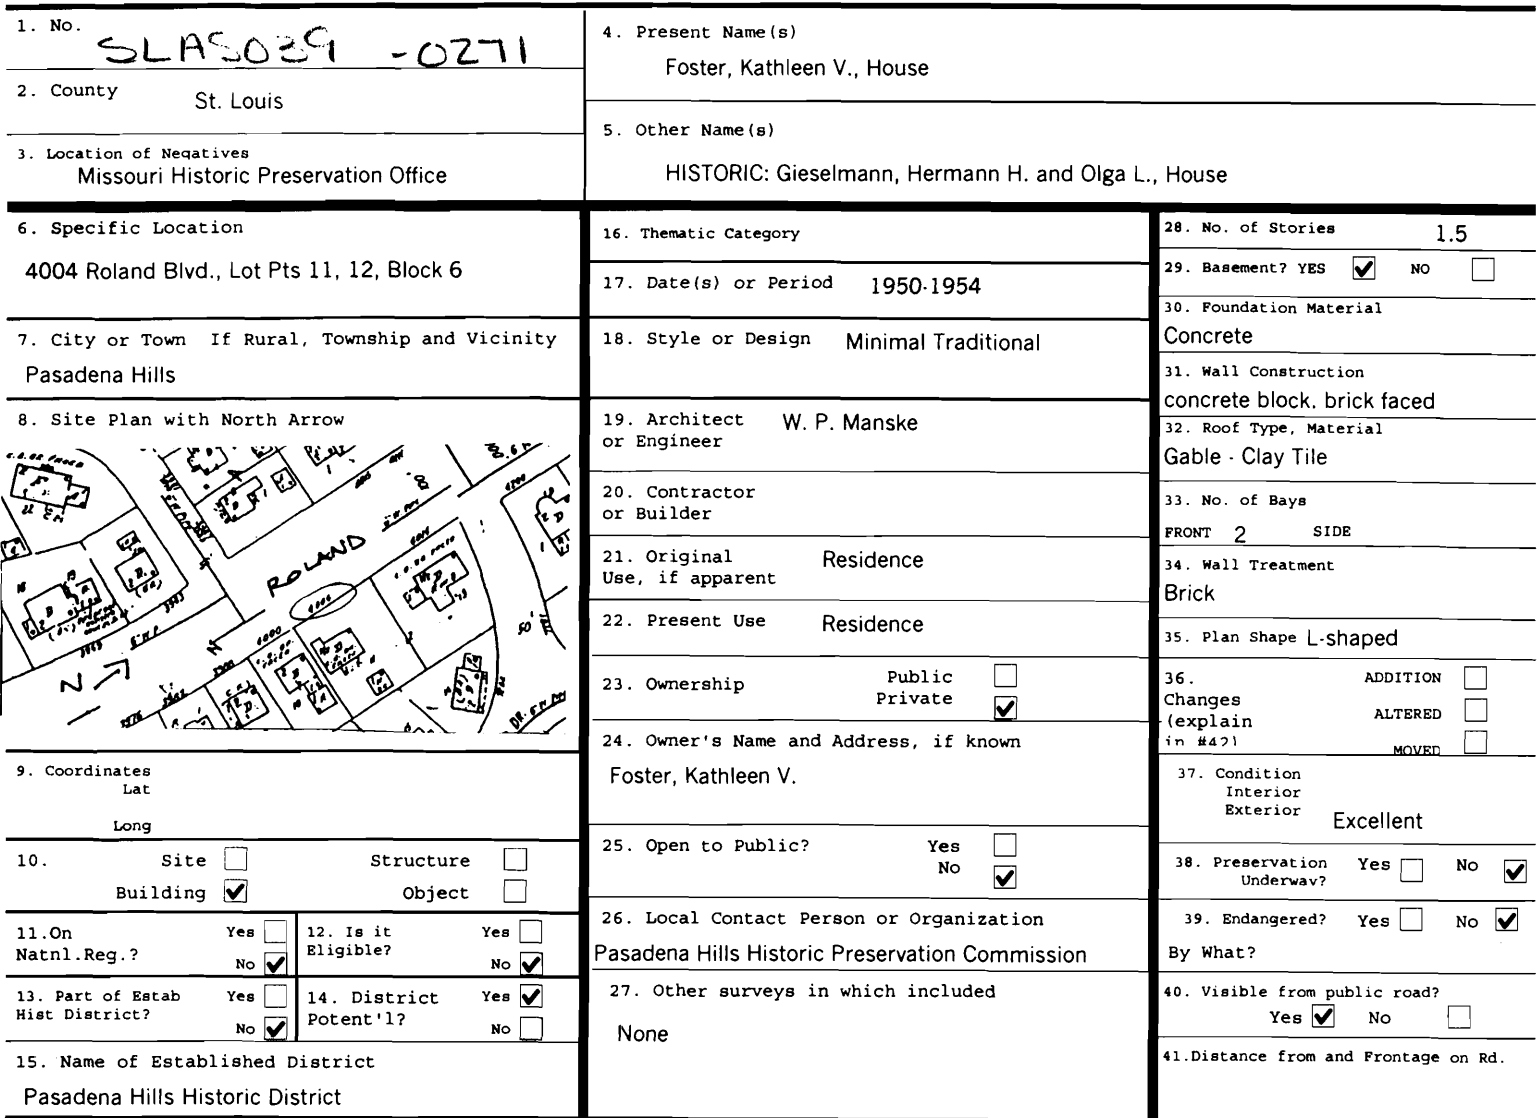 1. No.
SLAS039 -0271
2. County
St. Louis
3. Location of Negatives
Missouri Historic Preservation Office
4. Present Name(s)
Foster, Kathleen V., House
5. Other Name(s)
HISTORIC: Gieselmann, Hermann H. and Olga L., House
6. Specific Location
4004 Roland Blvd., Lot Pts 11, 12, Block 6
7. City or Town If Rural, Township and Vicinity
Pasadena Hills
8. Site Plan with North Arrow
ROLAND
4000
N
50'
9. Coordinates
Lat
Long
10. Site Structure
Building ✔ Object
11.On Yes
Natnl.Reg.?
No ✔
12. Is it Yes
Eligible?
No ✔
13. Part of Estab Yes
Hist District?
No ✔
14. District Yes ✔
Potent'l?
No
15. Name of Established District
Pasadena Hills Historic District
16. Thematic Category
17. Date(s) or Period 1950-1954
18. Style or Design Minimal Traditional
19. Architect W. P. Manske
or Engineer
20. Contractor
or Builder
21. Original Residence
Use, if apparent
22. Present Use Residence
23. Ownership Public
Private ✔
24. Owner's Name and Address, if known
Foster, Kathleen V.
25. Open to Public? Yes
No ✔
26. Local Contact Person or Organization
Pasadena Hills Historic Preservation Commission
27. Other surveys in which included
None
28. No. of Stories 1.5
29. Basement? YES ✔ NO
30. Foundation Material
Concrete
31. Wall Construction
concrete block. brick faced
32. Roof Type, Material
Gable - Clay Tile
33. No. of Bays
FRONT 2 SIDE
34. Wall Treatment
Brick
35. Plan Shape L-shaped
36. ADDITION
Changes
(explain ALTERED
in #42)
MOVED
37. Condition
Interior
Exterior Excellent
38. Preservation Yes No ✔
Underway?
39. Endangered? Yes No ✔
By What?
40. Visible from public road?
Yes ✔ No
41.Distance from and Frontage on Rd.